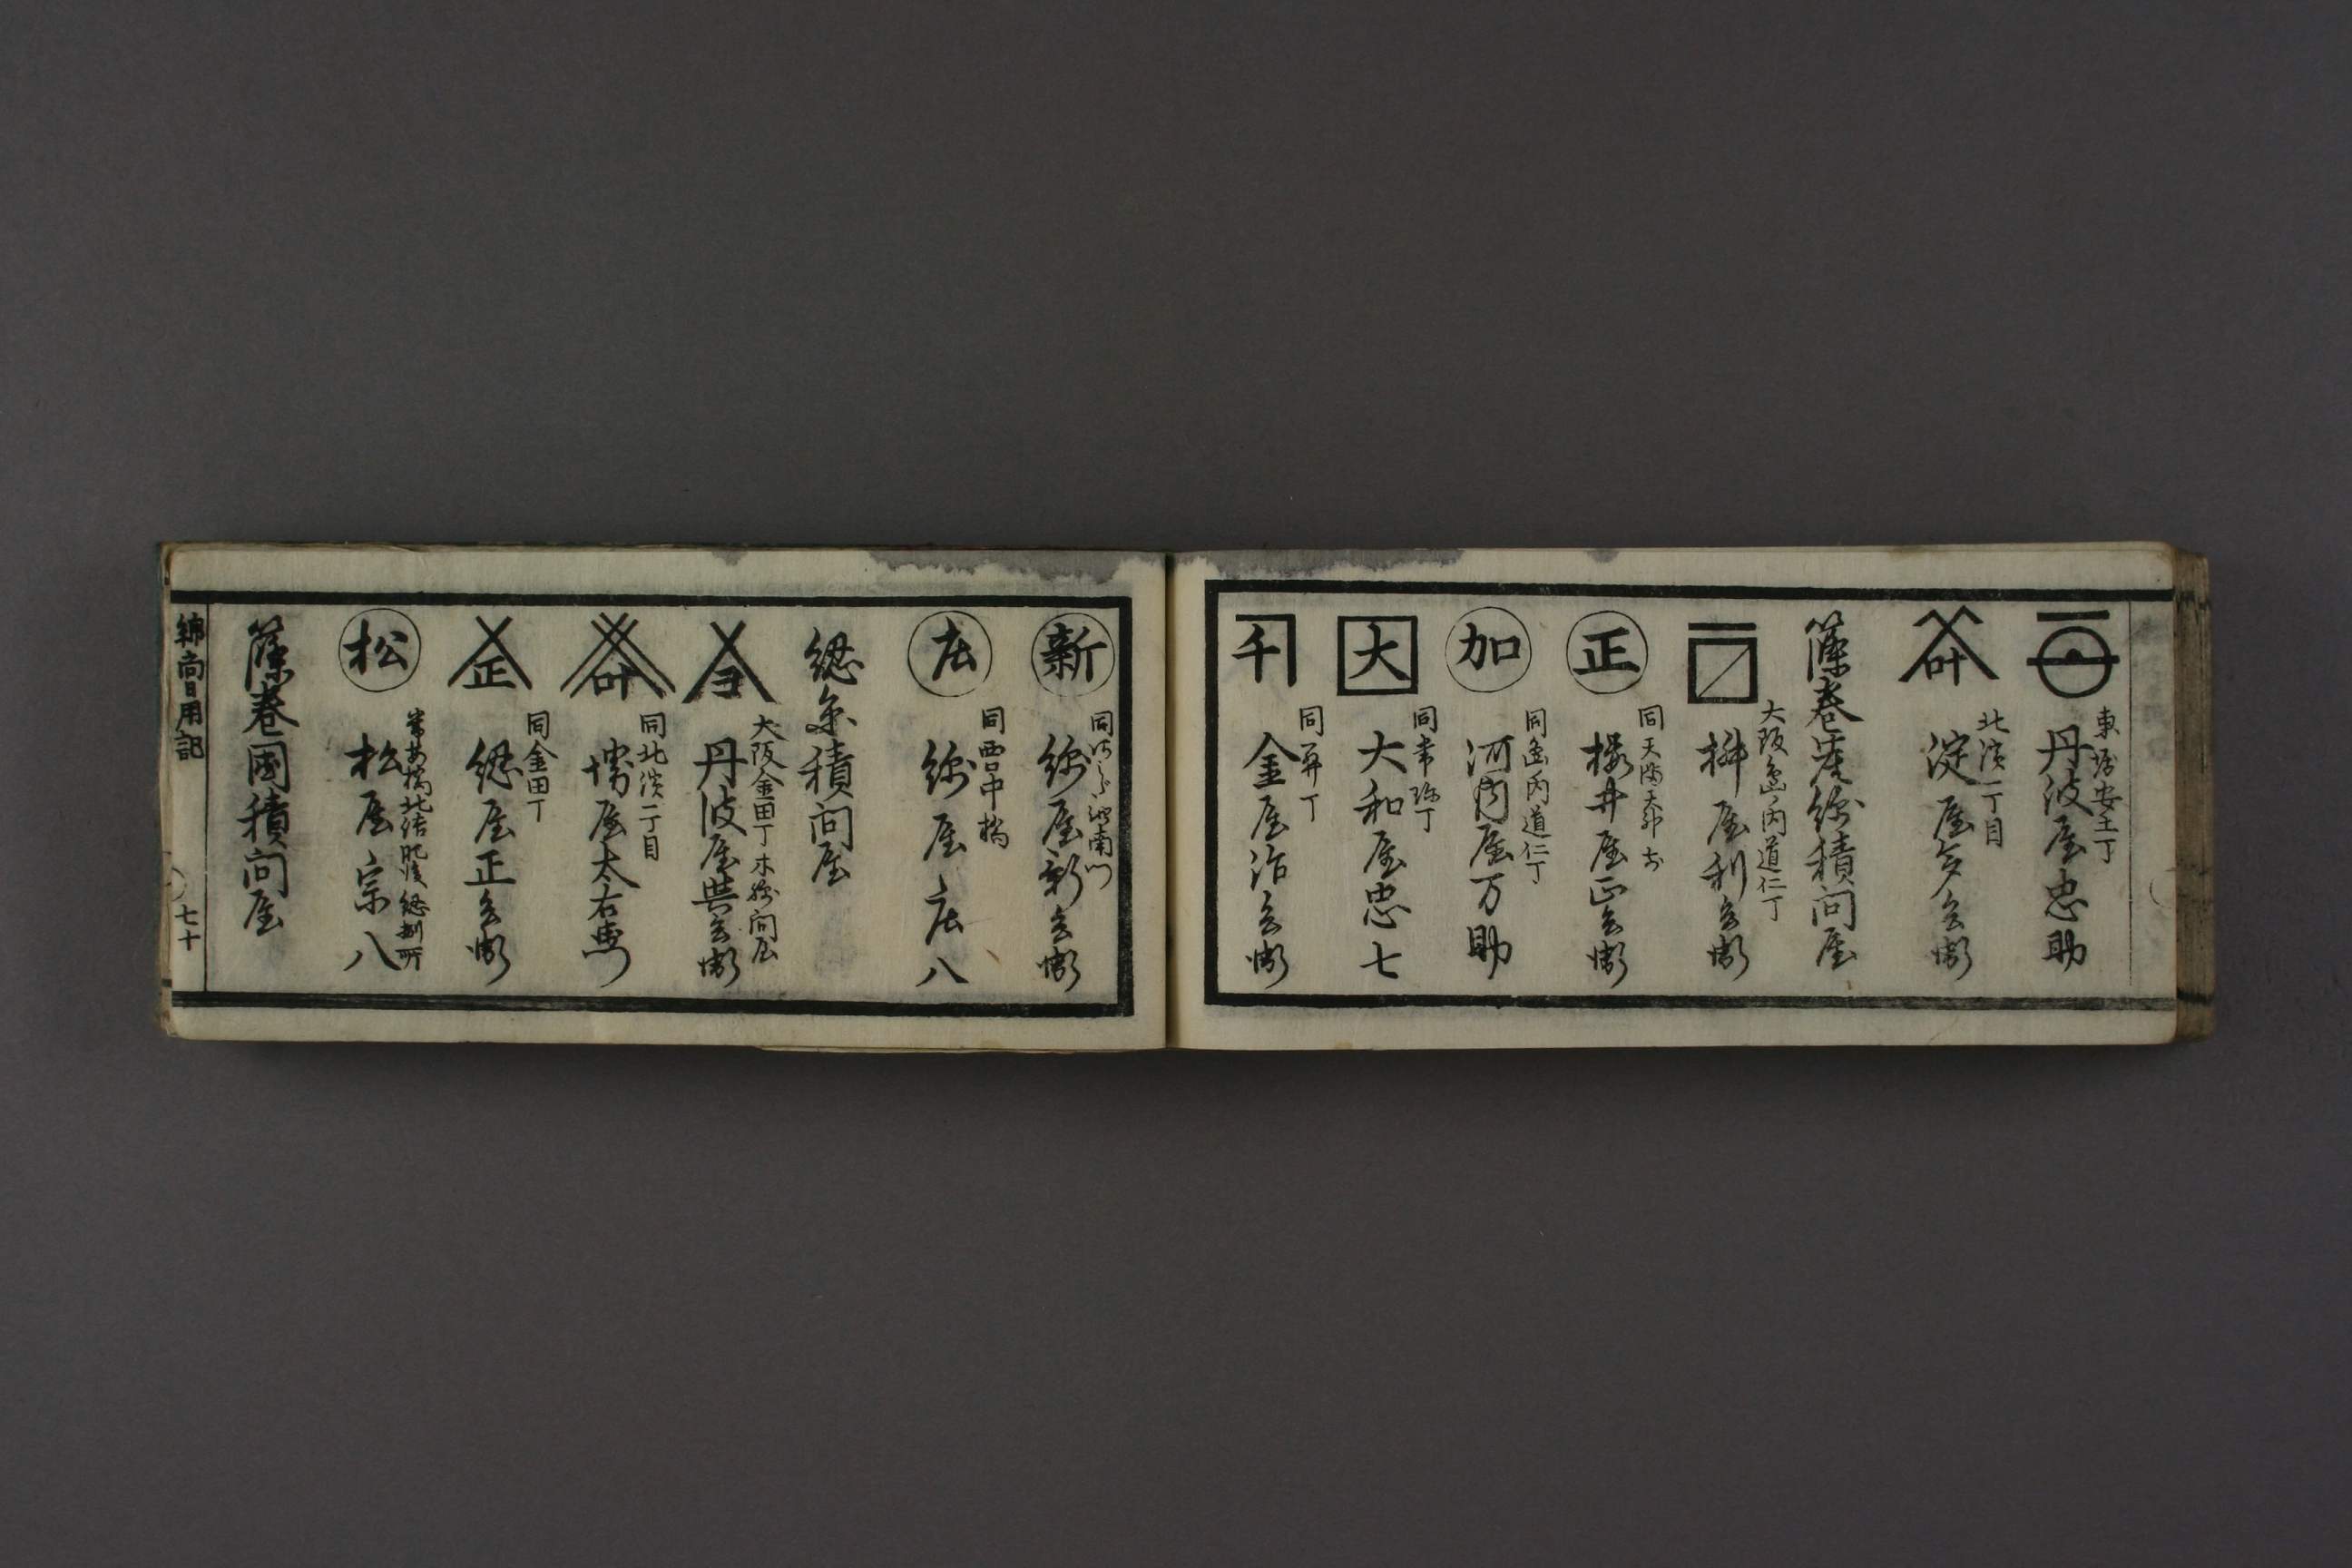 東堀安土丁
丹波屋忠助
叶
北濱一丁目
淀屋多兵衛
篠巻産綿積問屋
大阪嶋内道仁丁
桝屋利兵衛
正
同天満天神
櫻井屋正兵衛
加
同嶋内道仁丁
河内屋万助
大
同常珎丁
大和屋忠七
千
同丁
金屋治兵衛
新
同池南門
綿屋新兵衛
庄
同中橋
綿屋庄八
綛糸積問屋
ヨ
大阪金田丁木綿問屋
丹波屋與兵衛
叶
同北濱二丁目
屋太右衛門
正
同金田丁
綛屋正兵衛
松
常安橋北詰肥後綛捌所
松屋宗八
篠巻國積問屋
綿商日用記
七十